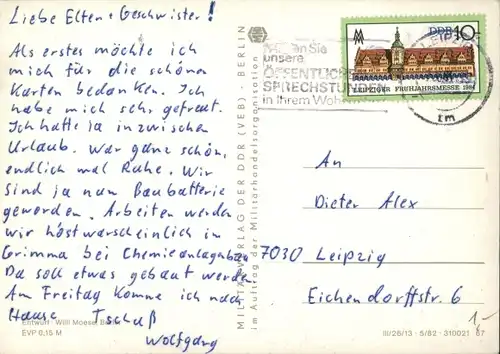 Liebe Eltern + Geschwister!
Als erstes möchte ich
mich für die schönen
Karten bedanken. Ich
habe mich sehr gefreut.
Ich hatte ja inzwischen
Urlaub. War ganz schön,
endlich mal Ruhe. Wir
sind ja nun Baubatterie
geworden. Arbeiten werden
wir höstwarscheinlich in
Grimma bei Chemieanlagenbau
Da soll etwas gebaut werden
Am Freitag komme ich nach
Hause Tschuß
Wolfgang
Entwurf: Willi Moese, Berlin
EVP 0,15 M
MILITÄRVERLAG DER DDR (VEB) · BERLIN
im Auftrag der Militärhandelsorganisation
unsere
ÖFFENTLICHE
SPRECHSTUNDE
in Ihrem
DDR 10
LEIPZIGER FRÜHJAHRSMESSE 1984
An
Dieter Alex
7030 Leipzig
Eichendorffstr. 6
1,-
III/26/13 · 5/82 · 310021 87